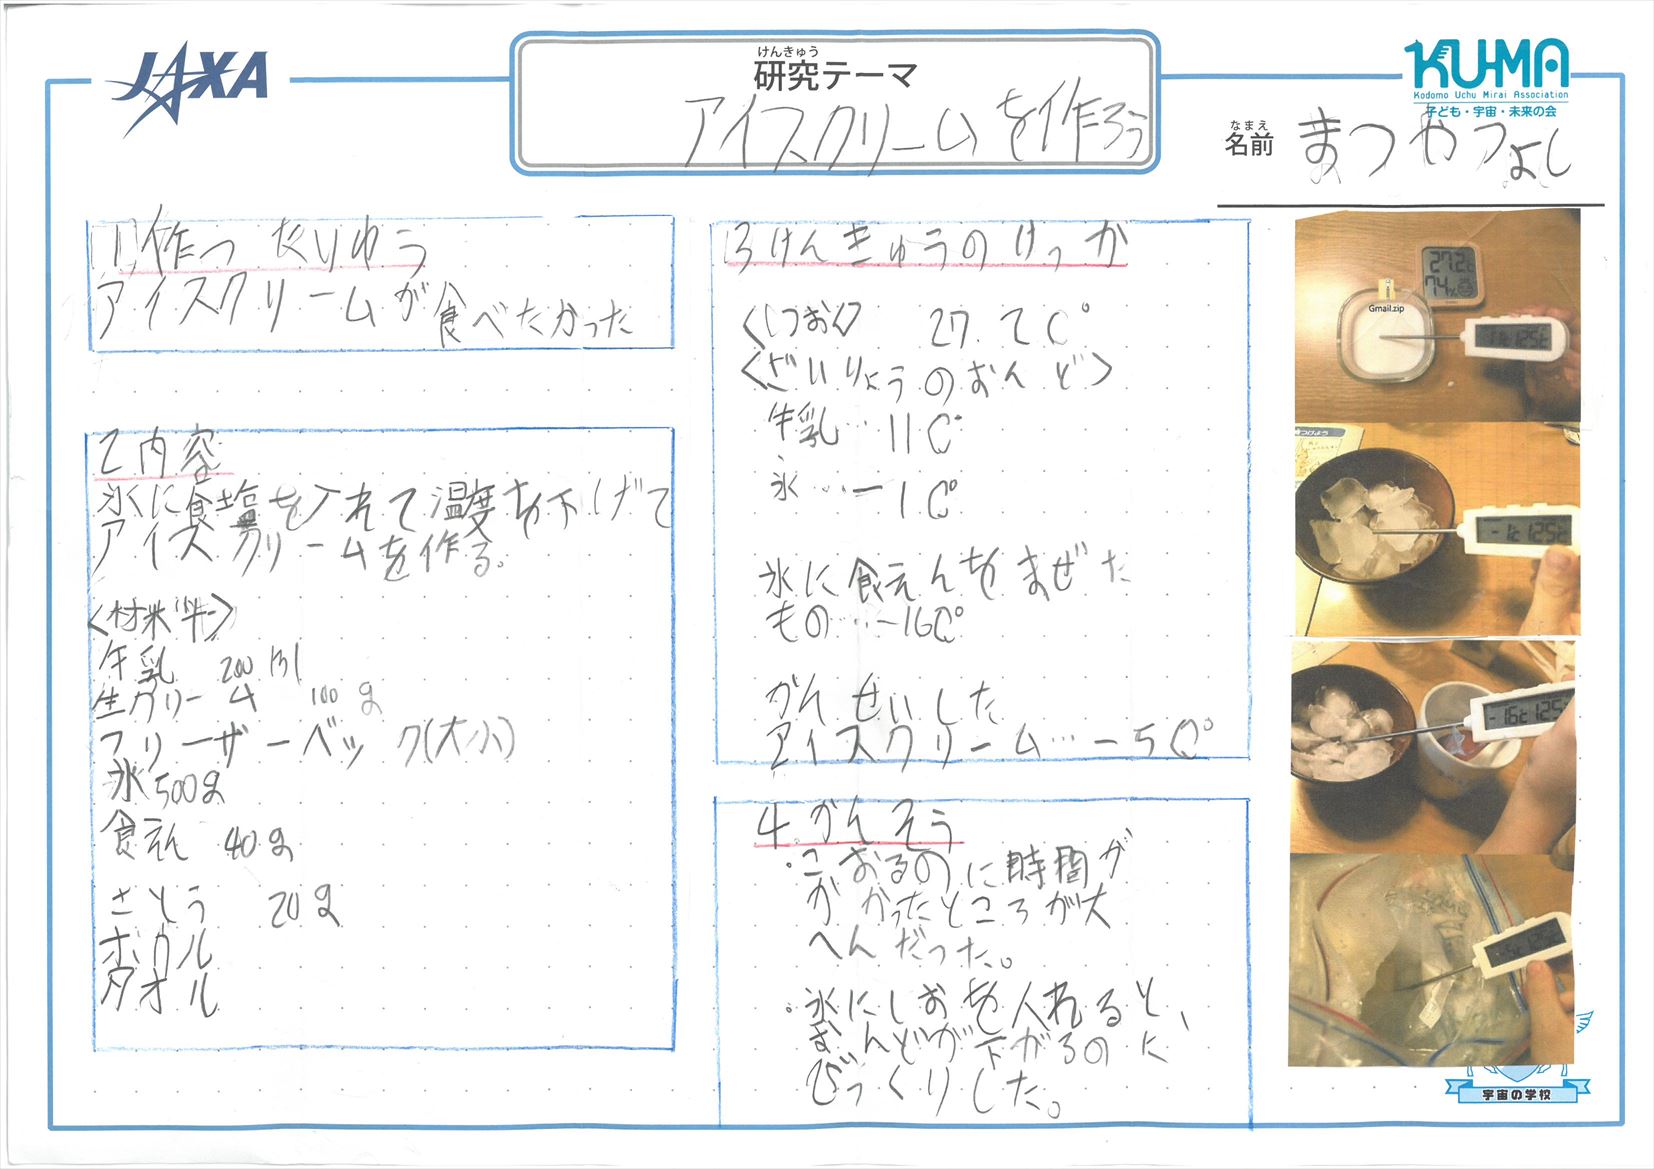 JAXA
けんきゅう
研究テーマ
アイスクリームを作ろう
KU-MA
Kodomo Uchu Mirai Association
子ども・宇宙・未来の会
なまえ
名前
まつや
よし
1 作ったりゆう
アイスクリームが食べたかった
2 内容
氷に食塩を入れて温度を下げて
アイスクリームを作る。
<材料>
牛乳 200ml
生クリーム 100g
フリーザーベック(大小)
氷 500g
食えん 40g
さとう 20g
ボウル
タオル
3 けんきゅうのけっか
<しつおん> 27.2C°
<ざいりょうのおんど>
牛乳…11C°
氷…-1C°
氷に食えんをまぜた
もの…-16C°
かんせいした
アイスクリーム…-5C°
4 かんそう
・こおるのに時間が
かかったところが大
へんだった。
・氷にしおを入れると、
おんどが下がるのに
びっくりした。
27.2
74%
Gmail.zip
つけよう
-1℃ 125℃
-16℃ 125℃
宇宙の学校